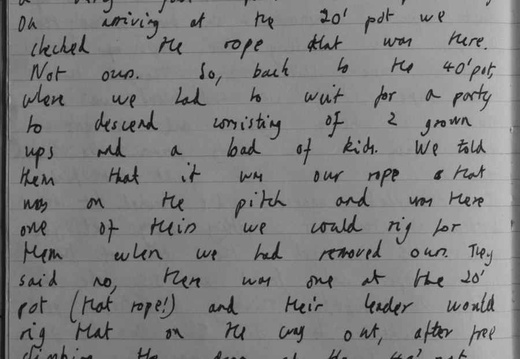 On arriving at the 20' pot we
checked the rope that was there.
Not ours. So, back to the 40' pot,
where we had to wait for a party
to descend consisting of 2 grown
ups and a load of kids. We told
them that it was our rope that
was on the pitch and was there
one of theirs we could rig for
them when we had removed ours. They
said no, there was one at the 20'
pot (that rope!) and their leader would
rig that on the way out, after free
climbing the